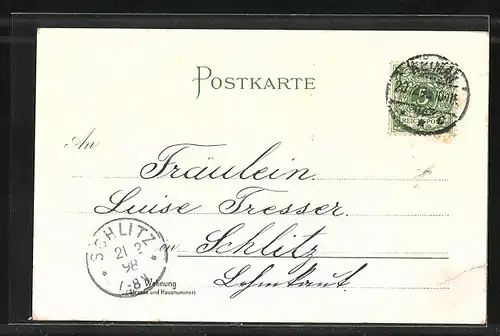 POSTKARTE
REICHSPOST
An
Fräulein
Luise Tresser.
in Schlitz
Lehmkaut
Wohnung
(Strasse und Hausnummer)
SCHLITZ
21 2
98
7-8N